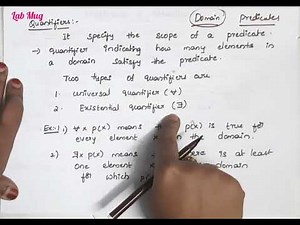 Lab Mug
Quantifiers:-
Domain
Predicates
It specify the scope of a predicate.
→ quantifier indicating how many elements in
a domain satisfy the predicate.
Two types of quantifiers are
1. universal quantifier (∀)
2. Existental quantifier (∃)
Ex:-1) ∀x p(x) means p(x) is true for
every element in the domain.
2) ∃x p(x) means there is at least
one element domain
for which